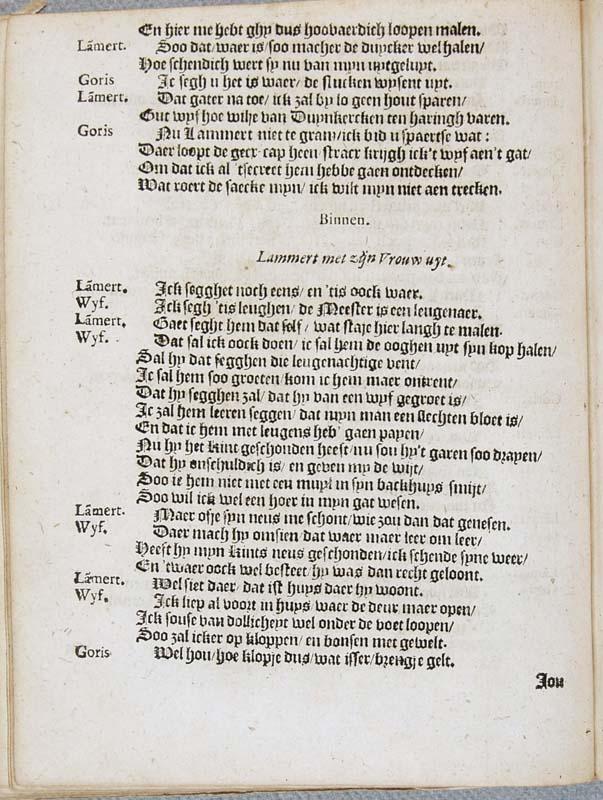 En hier me hebt ghy dus hoovaerdich loopen malen.
Lãmert. Soo dat waer is/ soo macher de duycker wel halen/
Hoe schendich wert sy nu van myn uytgeluyt.
Goris Ic segh u het is waer/ de stucken wysent uyt.
Lãmert. Dat gater na toe/ ick zal by lo geen hout sparen/
Gut wyf hoe wilje van Duynkercken ten haringh varen.
Goris Nu Lammert niet te gram/ ick bid u spaertse wat:
Daer loopt de gecx-cap heen stracx krijgh ick't wyf aen't gat/
Om dat ick al 'tsecreet hem hebbe gaen ontdecken/
Wat roert de saecke myn/ ick wilt myn niet aen trecken.
Binnen.
Lammert met zijn Vrouw uyt.
Lãmert. Ick segghet noch eens/ en 'tis oock waer.
Wyf. Ick segh 'tis leughen/ de Meester is een leugenaer.
Lãmert. Gaet seght hem dat self/ wat staje hier langh te malen.
Wyf. Dat sal ick oock doen/ ic sal hem de ooghen uyt syn kop halen/
Sal hy dat segghen die leugenachtige vent/
Ic sal hem soo groeten/ kom ic hem maer ontrent/
Dat hy segghen zal/ dat hy van een wyf gegroet is/
Ic zal hem leeren seggen/ dat myn man een slechten bloet is/
En dat ie hem met leugens heb' gaen payen/
Nu hy het kint geschonden heeft/ nu sou hy't garen soo drayen/
Dat hy onschuldich is/ en geven my de wijt/
Soo ie hem niet met een muyl in syn backhuys smijt/
Soo wil ick wel een hoer in myn gat wesen.
Lãmert. Maer ofje syn neus me schont/ wie zou dan dat genesen.
Wyf. Daer mach hy omsien/ dat waer maer leer om leer/
Heeft hy myn kints neus geschonden/ ick schende syne weer/
En 'twaer oock wel besteet/ hy was dan recht geloont.
Lãmert. Wel siet daer/ dat ist huys daer hy woont.
Wyf. Ick liep al voort in huys waer de deur maer open/
Ick souse van dollicheyt wel onder de voet loopen/
Soo zal icker op kloppen/ en bonsen met gewelt.
Goris Wel hou/ hoe klopje dus/ wat isser/ brengje gelt.
Jou